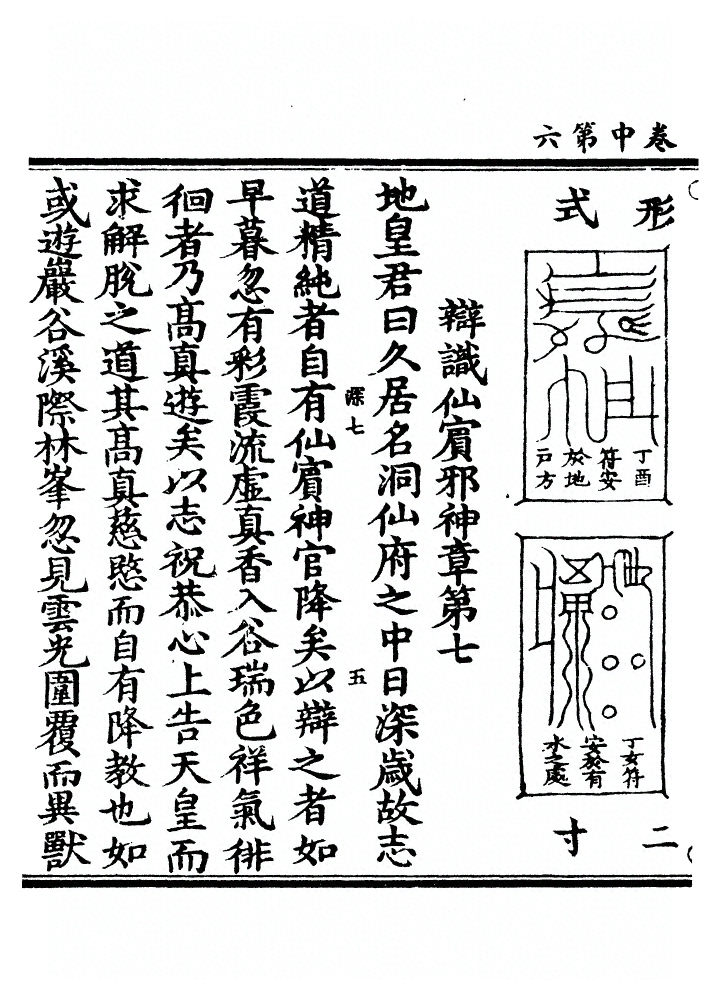 卷中第六
形式
丁酉
符安
於地
戶方
二寸
丁亥符
安於有
水之處
辯識仙賔邪神章第七
地皇君曰久居名洞仙府之中日深歲故志
深七
五
道精純者自有仙賔神官降矣以辯之者如
早暮忽有彩霞流虛真香入谷瑞色祥氣徘
徊者乃高真遊矣以志祝恭心上告天皇而
求解脫之道其高真慈愍而自有降教也如
或遊巖谷溪際林峯忽見雲光圍覆而異獸